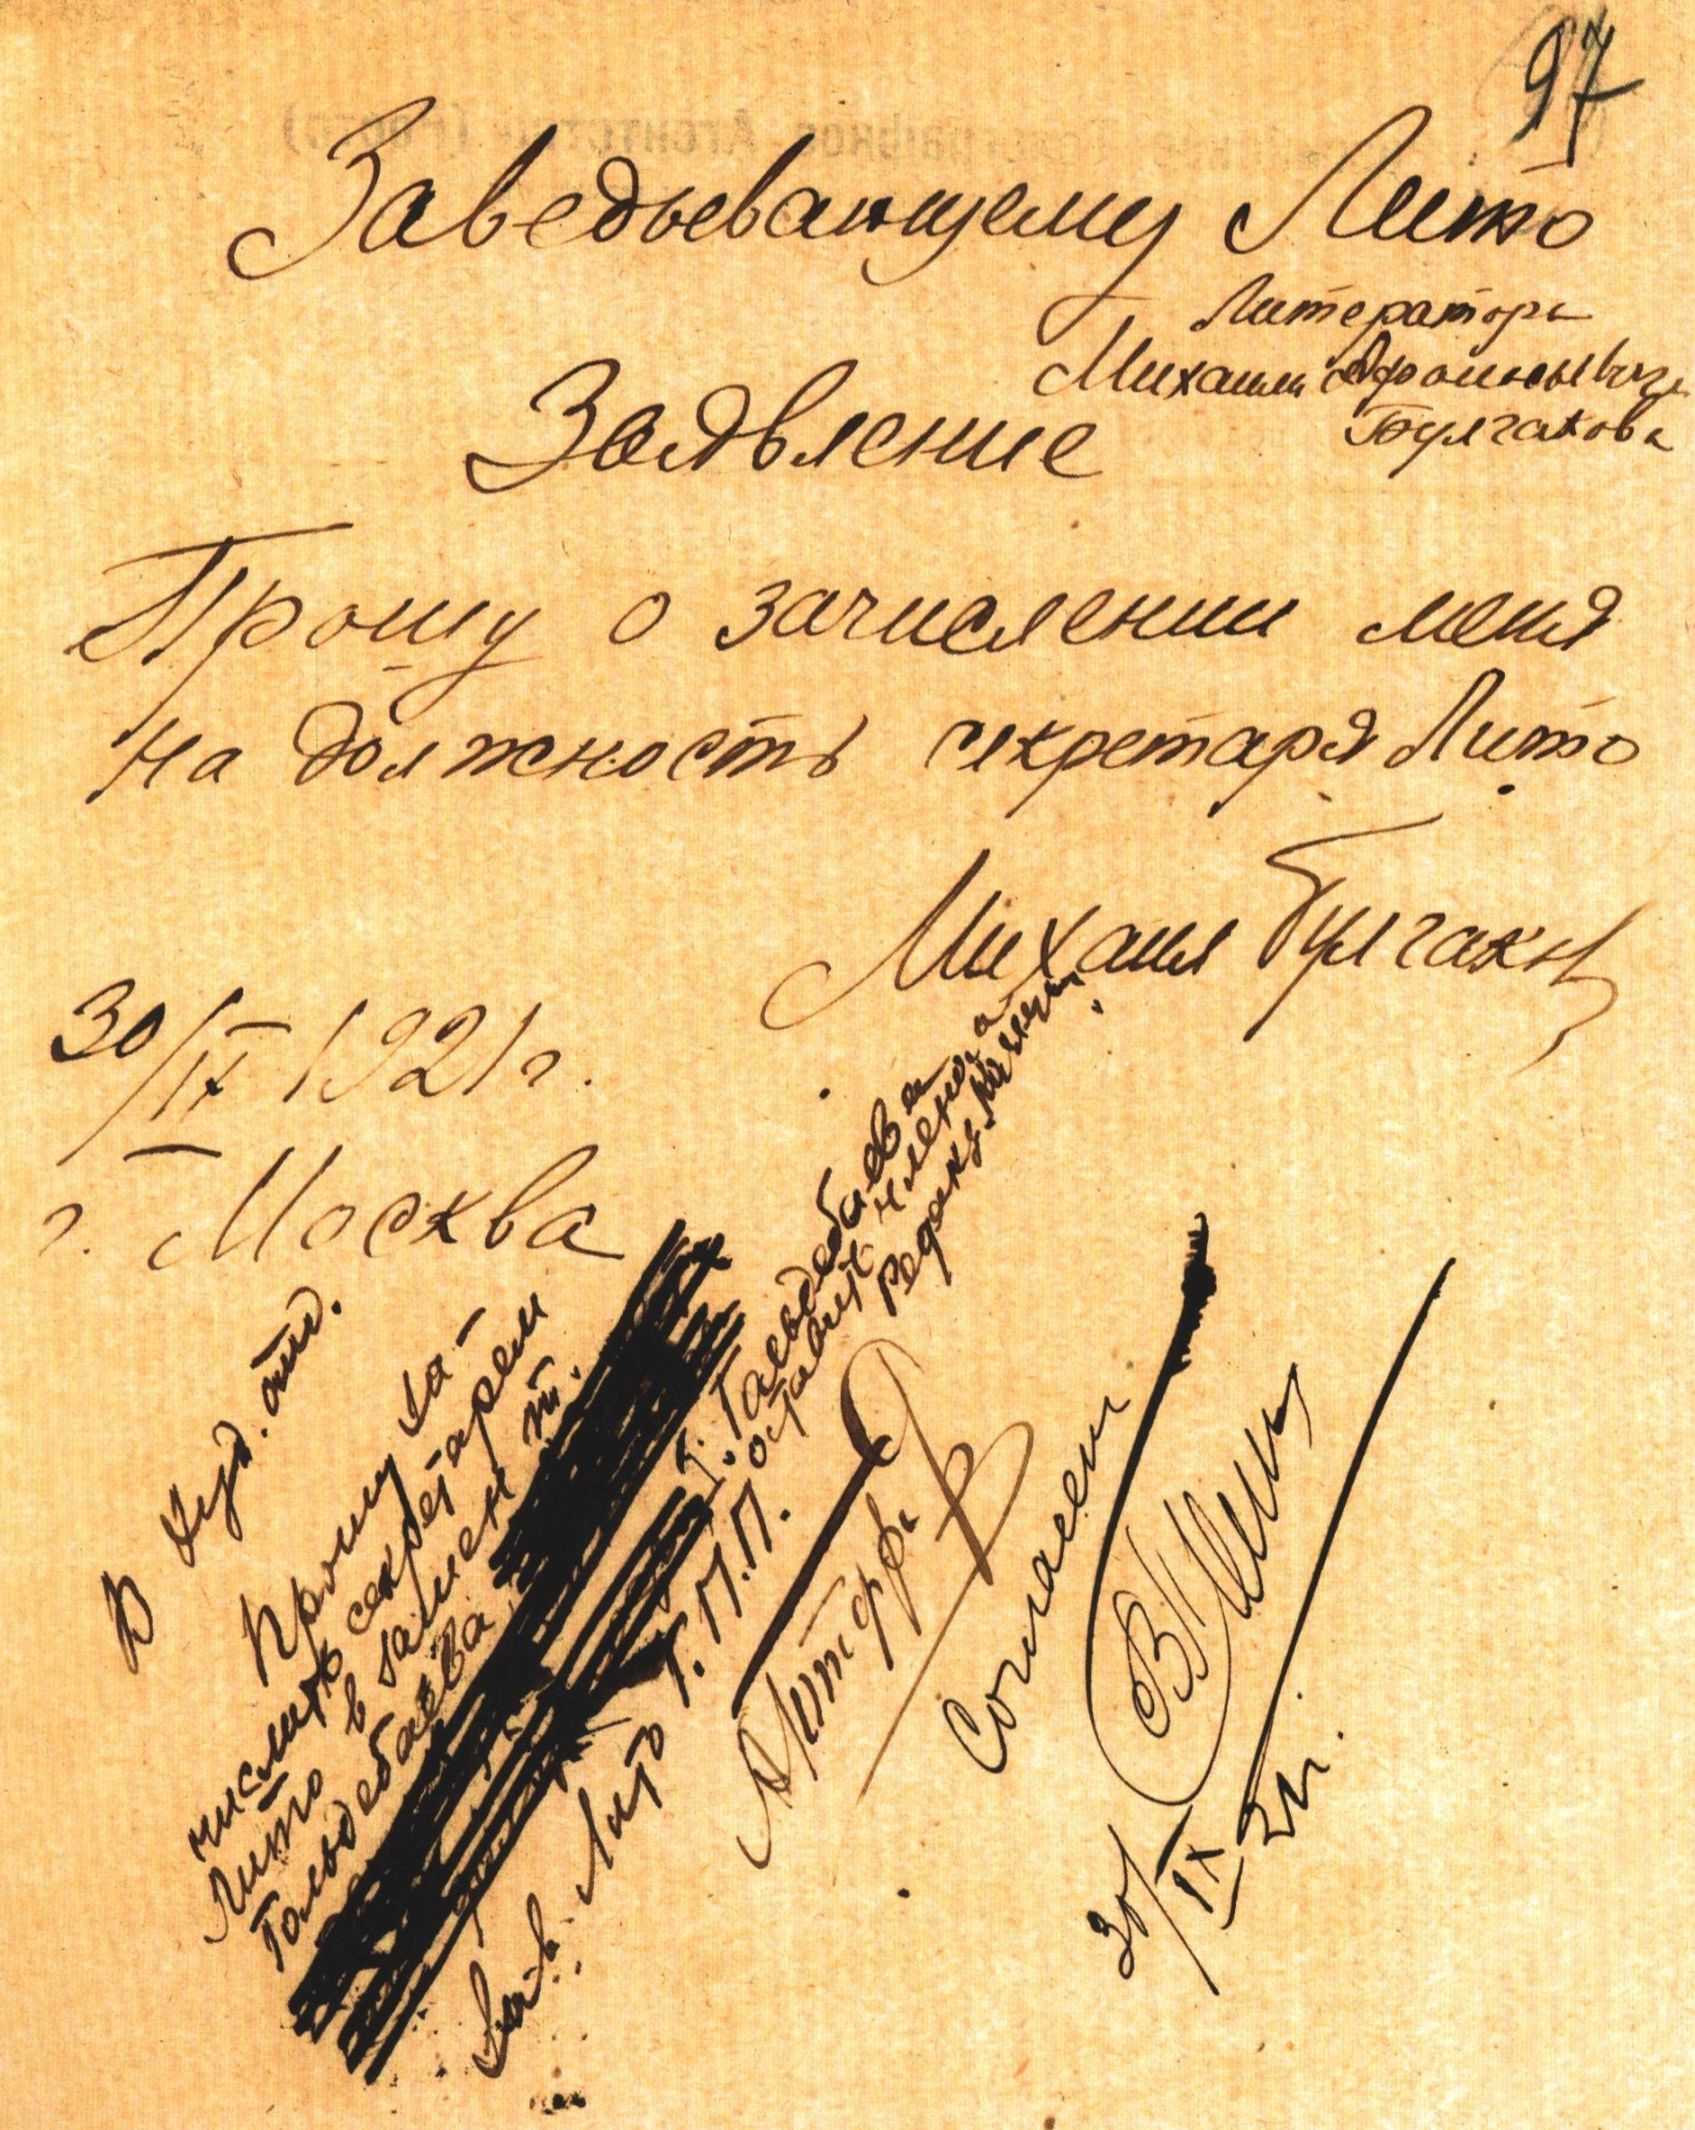 97
Заведывающему Лито
Литератора
Михаила Афанасьевича
Булгакова
Заявление
Прошу о зачислении меня
на должность секретаря Лито
Михаил Булгаков
30/IX 1921 г.
г. Москва
В худ. отд.
Прошу за-
числить секретарем
Лито в замен т.
Гольдебаева,
т. Гольдебаева
оставить членом
Редакц. Коллегии.
Зав. Лито Г.П.П.
Согласен
30/IX 21 г.